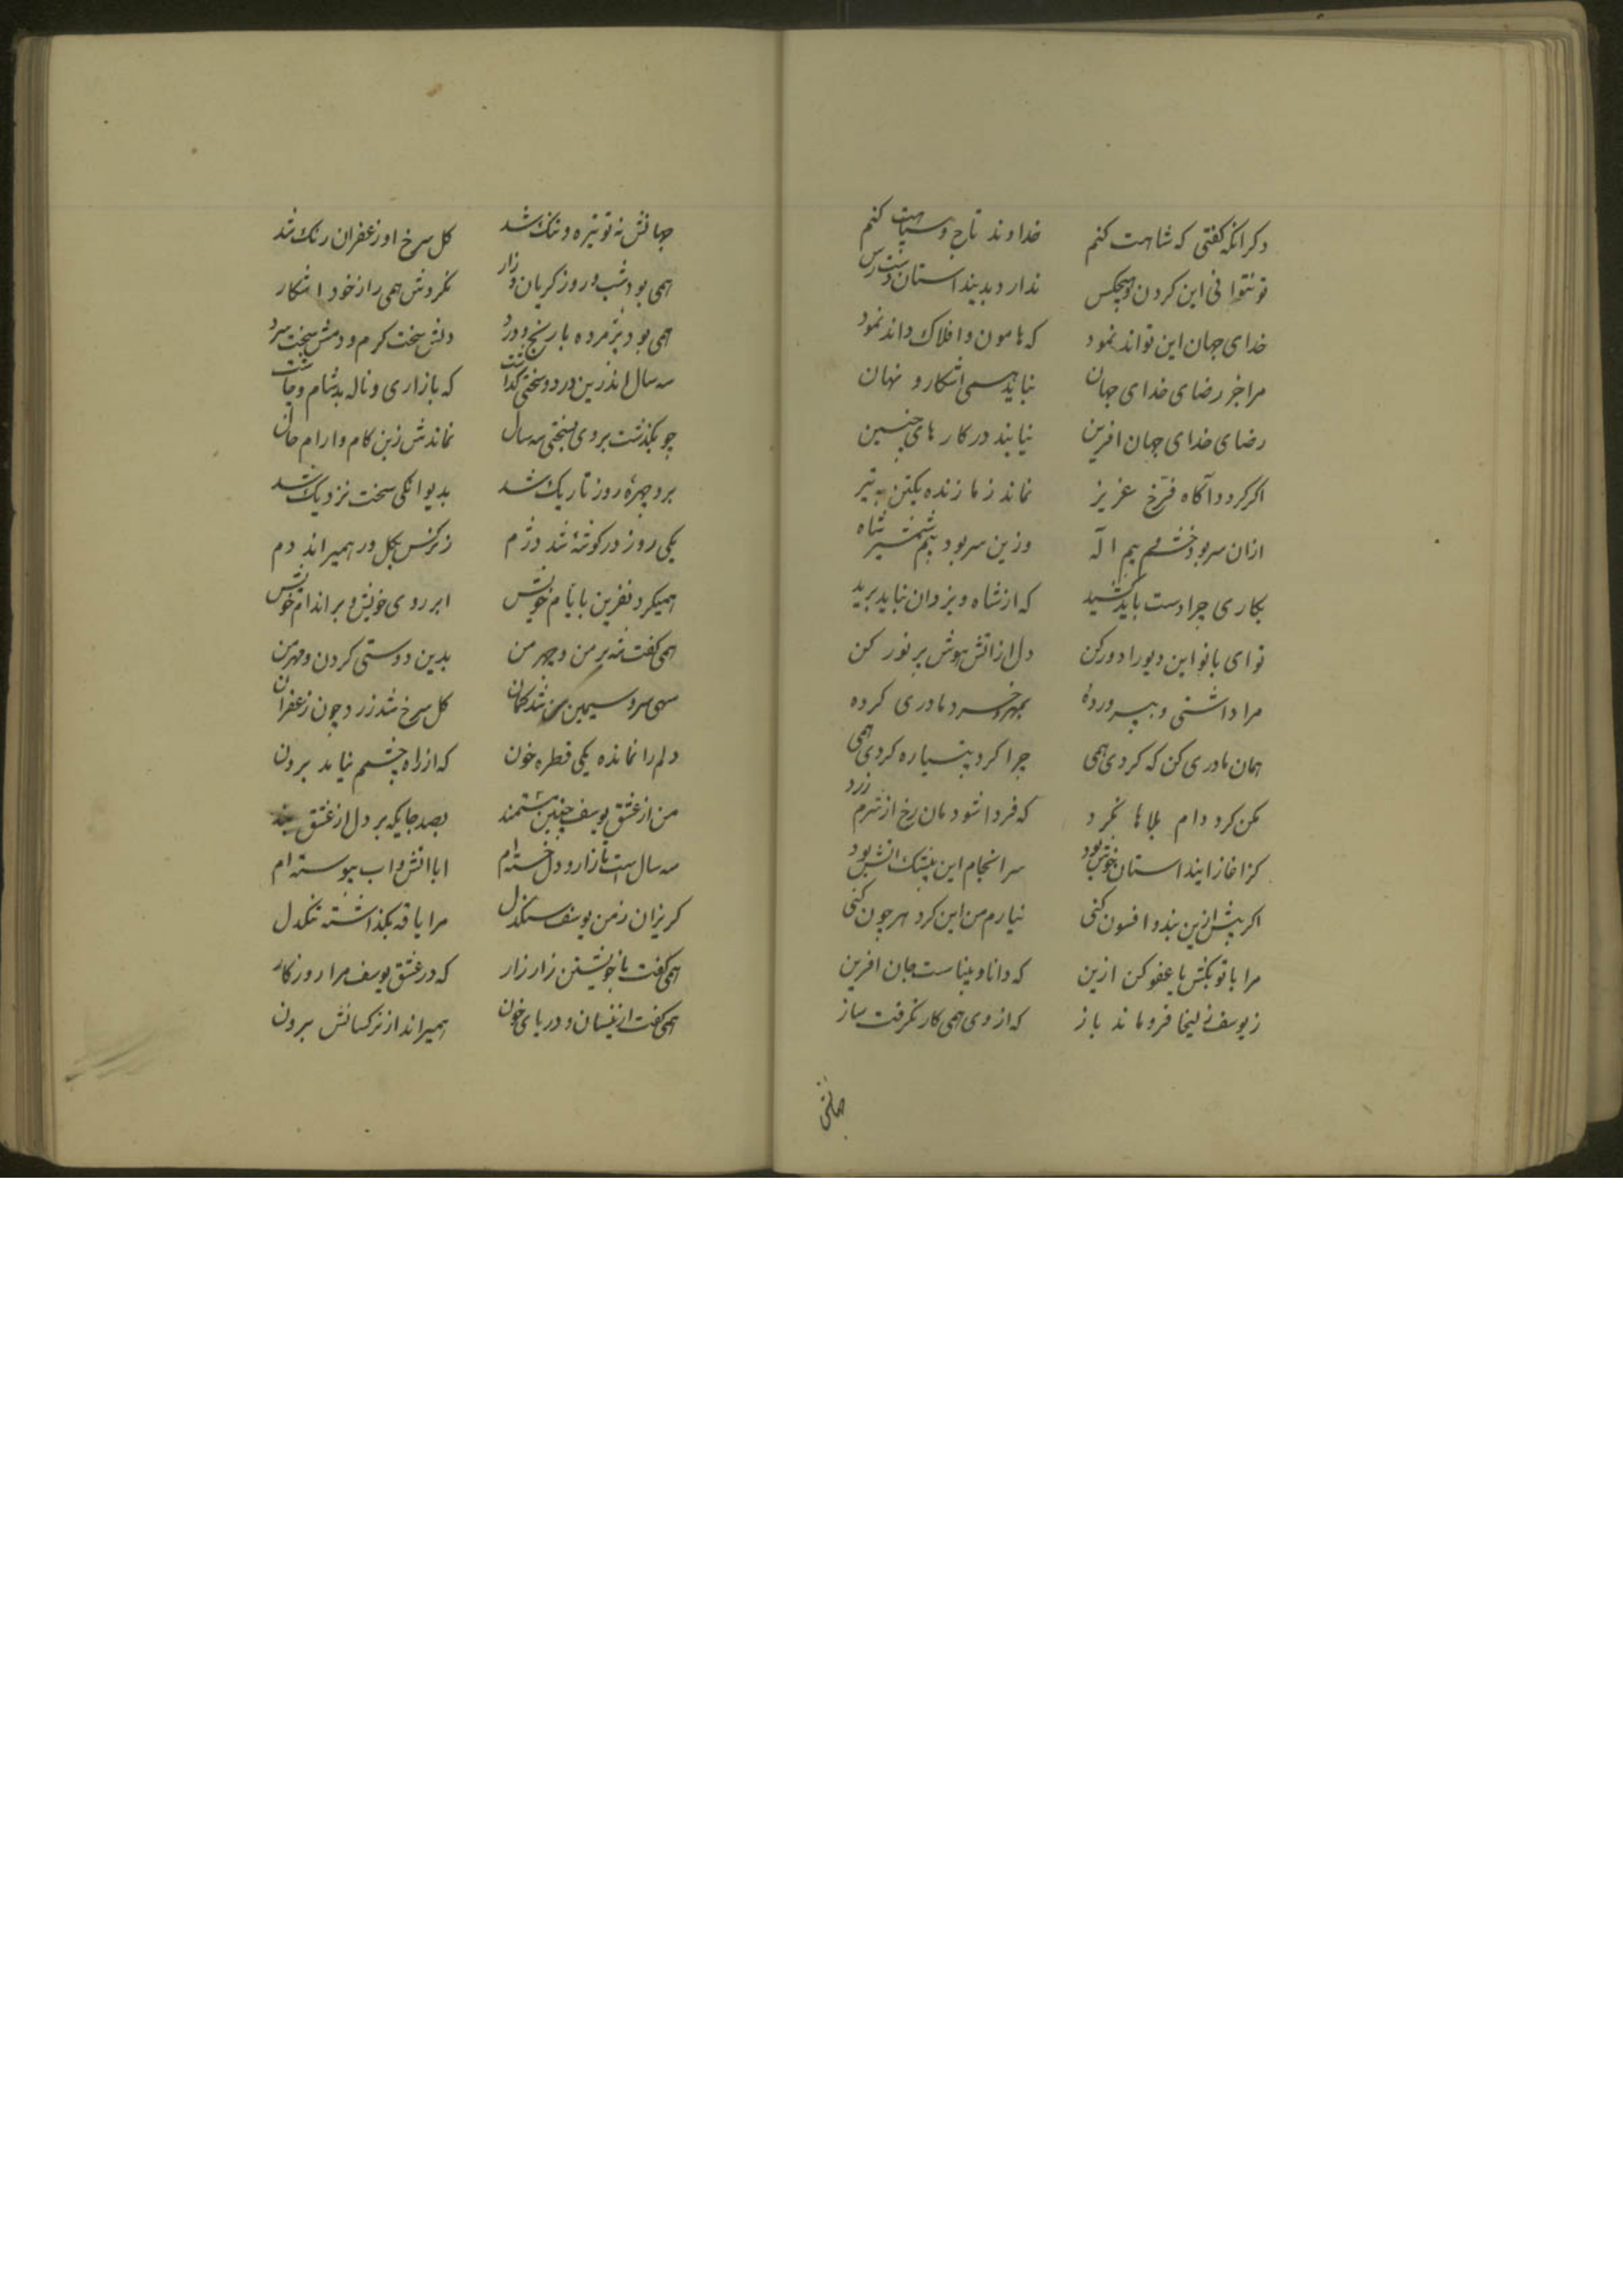 دکر انکه کفتی که شاهت کنم خداوند تاج و سپاهت کنم
تو نتوانی این کردن و هیچکس ندارد بدیند استان دست رس
خدای جهان این تواند نمود که هامون و افلاک داند نمود
مرا جز رضای خدای جهان نباید همی اشکار و نهان
رضای خدای جهان افرین نیابند در کارهای چنین
اکر کردد آکاه فرخ عزیز نماند ز ما زنده یکتن به نیز
ازان سر بود خشم و بیم اله وزین سر بود بیم شمشیر شاه
بکاری چرا دست باید کشید که از شاه و یزدان بباید برید
تو ای بانو این دیو را دور کن دل از اتش هوش پر نور کن
مرا داشتی و بپروردهٔ بمهر و خرد مادری کرده
همان مادری کن که کردی همی چرا کرد پتیاره کردی همی
مکن کرد دام بلاها نکرد که فردا شود مان رخ از شرم زرد
کزاغاز ایند استان خوش بود سرانجام این بیشک اتش بود
اکر پیش ازین بند و افسون کنی نیارم من این کرد هر چون کنی
مرا یا تو بکش یا عفو کن ازین که دانا و بیناست جان افرین
ز یوسف زلیخا فرو ماند باز که از وی همی کار نکرفت ساز
جهانش
جهانش نه تو تیره و تنک شد کل سرخ او زعفران رنک شد
همی بود شب و روز کریان و زار نکردش همی راز خود اشکار
همی بود پژمرده با رنج و درد دلش سخت کرم و دمش سخت سرد
سه سال اندرین درد و سختی کذاشت که بازاری و ناله بد شام و چاشت
چو بکذشت بر وی بسختی سه سال نماندش زبن کام و ارام و حال
برو چهرهٔ روز تاریک شد بدیوانکی سخت نزدیک شد
یکی روز در کوشهٔ شد دژم ز نرکس بکل بر همیراند دم
همیکرد نفرین بایام خویش ابر روی خویش و بر اندام خویش
همی کفت نه بر من و چهر من بدین دوستی کردن و مهر من
سهی سرو سیمین من شد کمان کل سرخ شد زرد چون زعفران
دلم را نمانده یکی قطره خون که از راه چشم نیاید برون
من از عشق یوسف چنین مستمند بصد جایکه بر دل از عشق بند
سه سال است تا زار و دل خسته ام ابا اتش و اب پیوسته ام
کریزان ز من یوسف سنکدل مرا یافه بکذاشته تنکدل
همی کفت با خویشتن زار زار که در عشق یوسف مرا روزکار
همی کفت از نیسان و دریای خون همیراند از نرکسانش برون